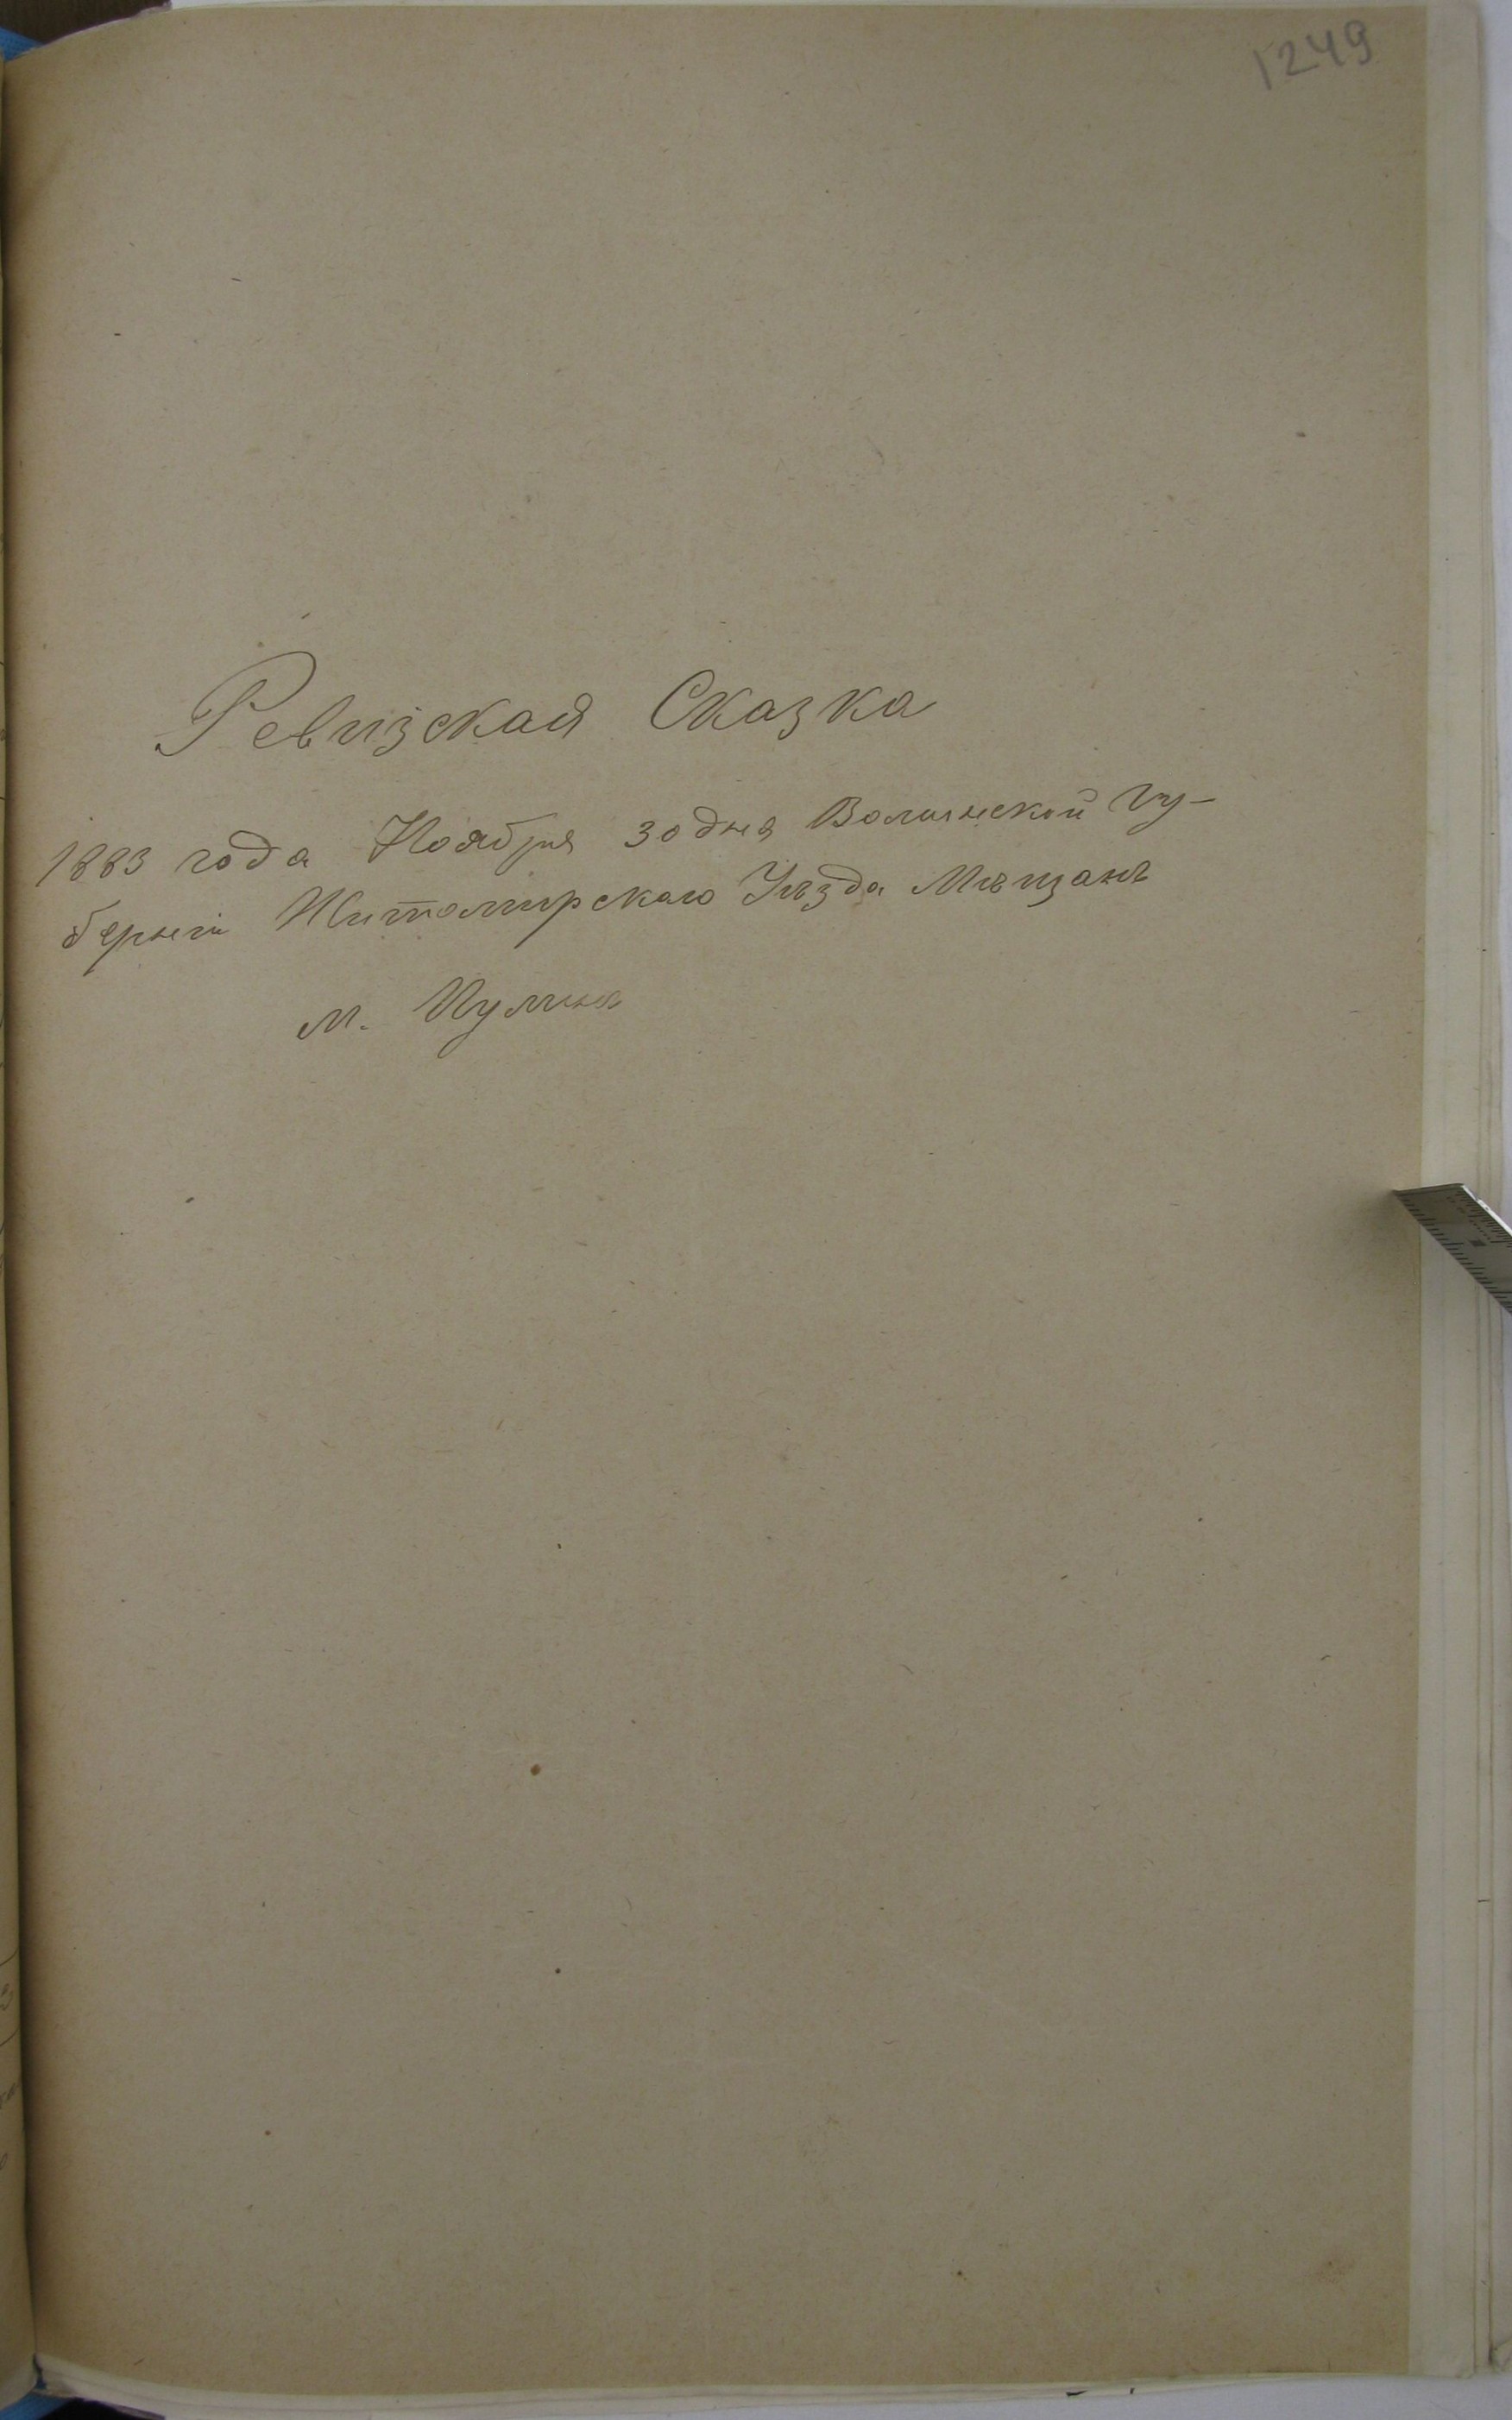 1249
Ревизская Сказка
1883 года Ноября 30 дня Волынской Гу-
берніи Житомирскаго Уѣзда Мѣщанъ
м. Пулина